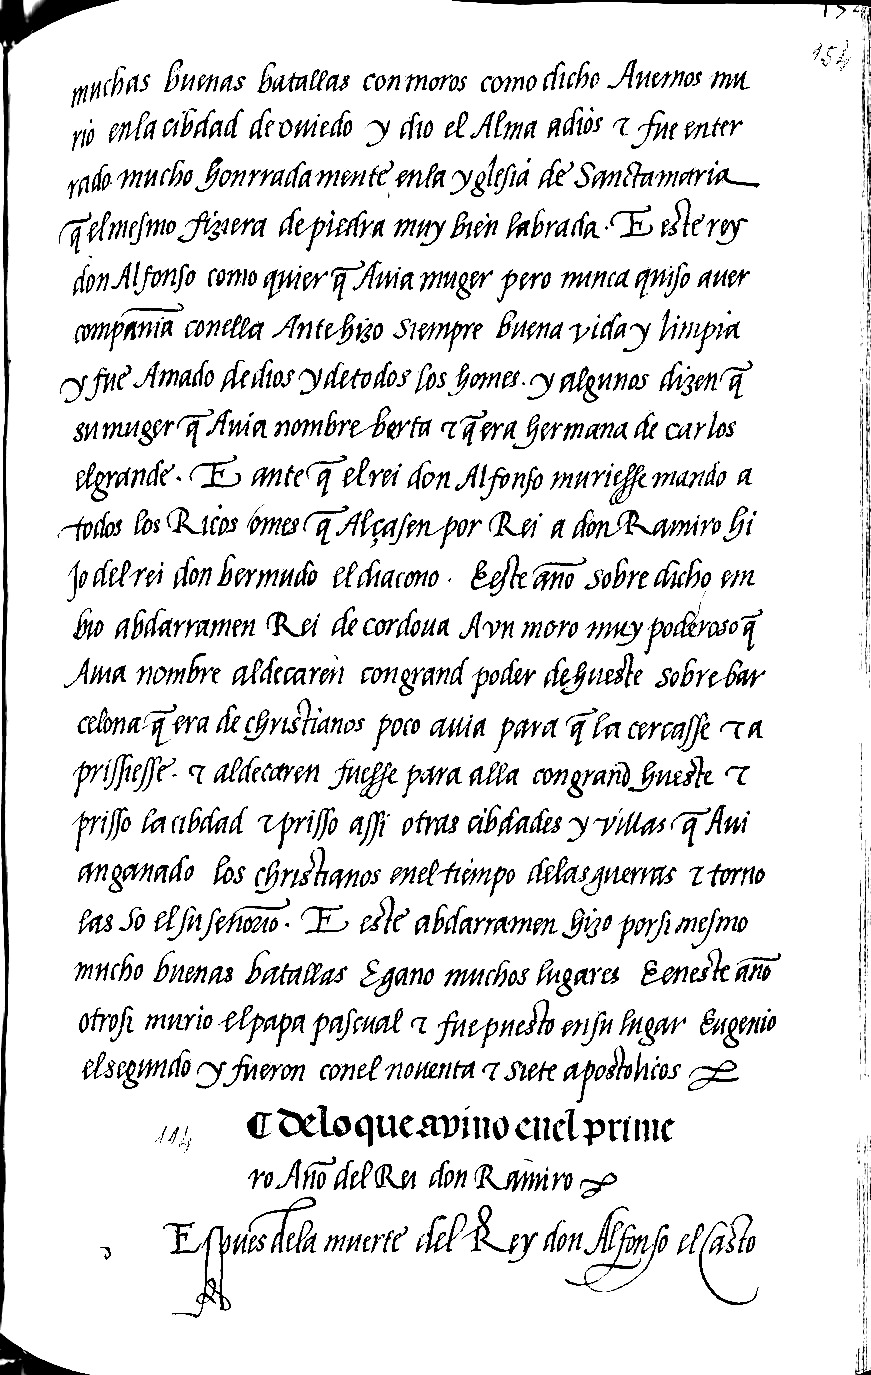 154
muchas buenas batallas con moros como dicho Auemos mu
rio enla cibdad de ouiedo y dio el Alma adios τ fue enter
rado mucho honrrada mente enla yglesia de Sanctamaria
q̄ el mesmo fiziera de piedra muy bien labrada. E este rey
don Alfonso como quier q̄ Auia muger pero nunca quiso auer
compañia conella Ante hizo siempre buena vida y limpia
y fue Amado de dios y de todos los homes. y algunos dizen q̄
su muger q̄ Auia nombre berta τ q̄ era hermana de carlos
elgrande. E ante q̄ el rei don Alfonso muriesse mando a
todos los Ricos omes q̄ Alçasen por Rei a don Ramiro hi
Jo del rei don bermudo el diacono. E este año sobre dicho em
bio abdarramen Rei de cordoua A vn moro muy poderoso q̄
Auia nombre aldecaren con grand poder de hueste sobre bar
celona q̄ era de christianos poco auia para q̄ la cercasse τ a
prissiesse. τ aldecaren fuesse para alla con grand hueste τ
prisso la cibdad τ prisso assi otras cibdades y villas q̄ Aui
an ganado los christianos enel tiempo delas guerras τ torno
las so el su señorio. E este abdarramen hizo por si mesmo
mucho buenas batallas E gano muchos lugares E en este año
otrosi murio el papa pascual τ fue puesto en su lugar Eugenio
el segundo y fueron conel nouenta τ siete apostolicos
114
¶ De lo que avino en el prime
ro Año del Rei don Ramiro
d Espues dela muerte del Rey don Alfonso el Casto